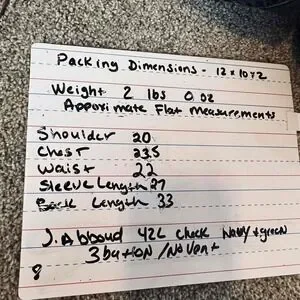 Packing Dimensions - 12x10x2
Weight 2 lbs 0.02
Approximate Flat measurements
Shoulder 20
Chest 23.5
Waist 22
Sleeve Length 27
Back Length 33
J.A bboud 42L Check Navy + green
3 button / No Vent
8